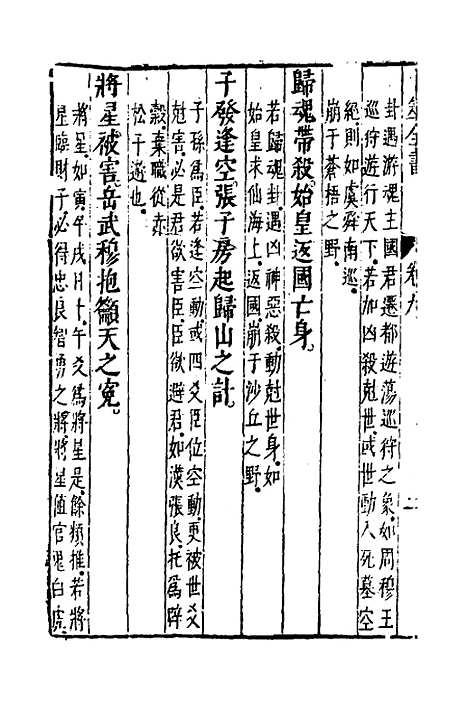 筮全書
卷九
二
卦遇游魂主國君遷都遊蕩巡狩之象如周穆王
巡狩遊行天下若加凶殺尅世或世動入死墓空
絕則如虞舜南巡
崩于蒼梧之野
歸魂帶殺始皇返國亡身
若歸魂卦遇凶神惡殺動尅世身如
始皇求仙海上返國崩于沙丘之野
子發逢空張子房起歸山之計
子孫爲臣若逢空動或四爻臣位空動更被世爻
尅害必是君欲害臣臣欲避君如漢張良托爲辟
穀棄職從赤
松子遊也
將星被害岳武穆抱籲天之寃
將星如寅午戌日卜午爻爲將星是餘類推若將
星臨財子必得忠良智勇之將將星值官鬼白虎